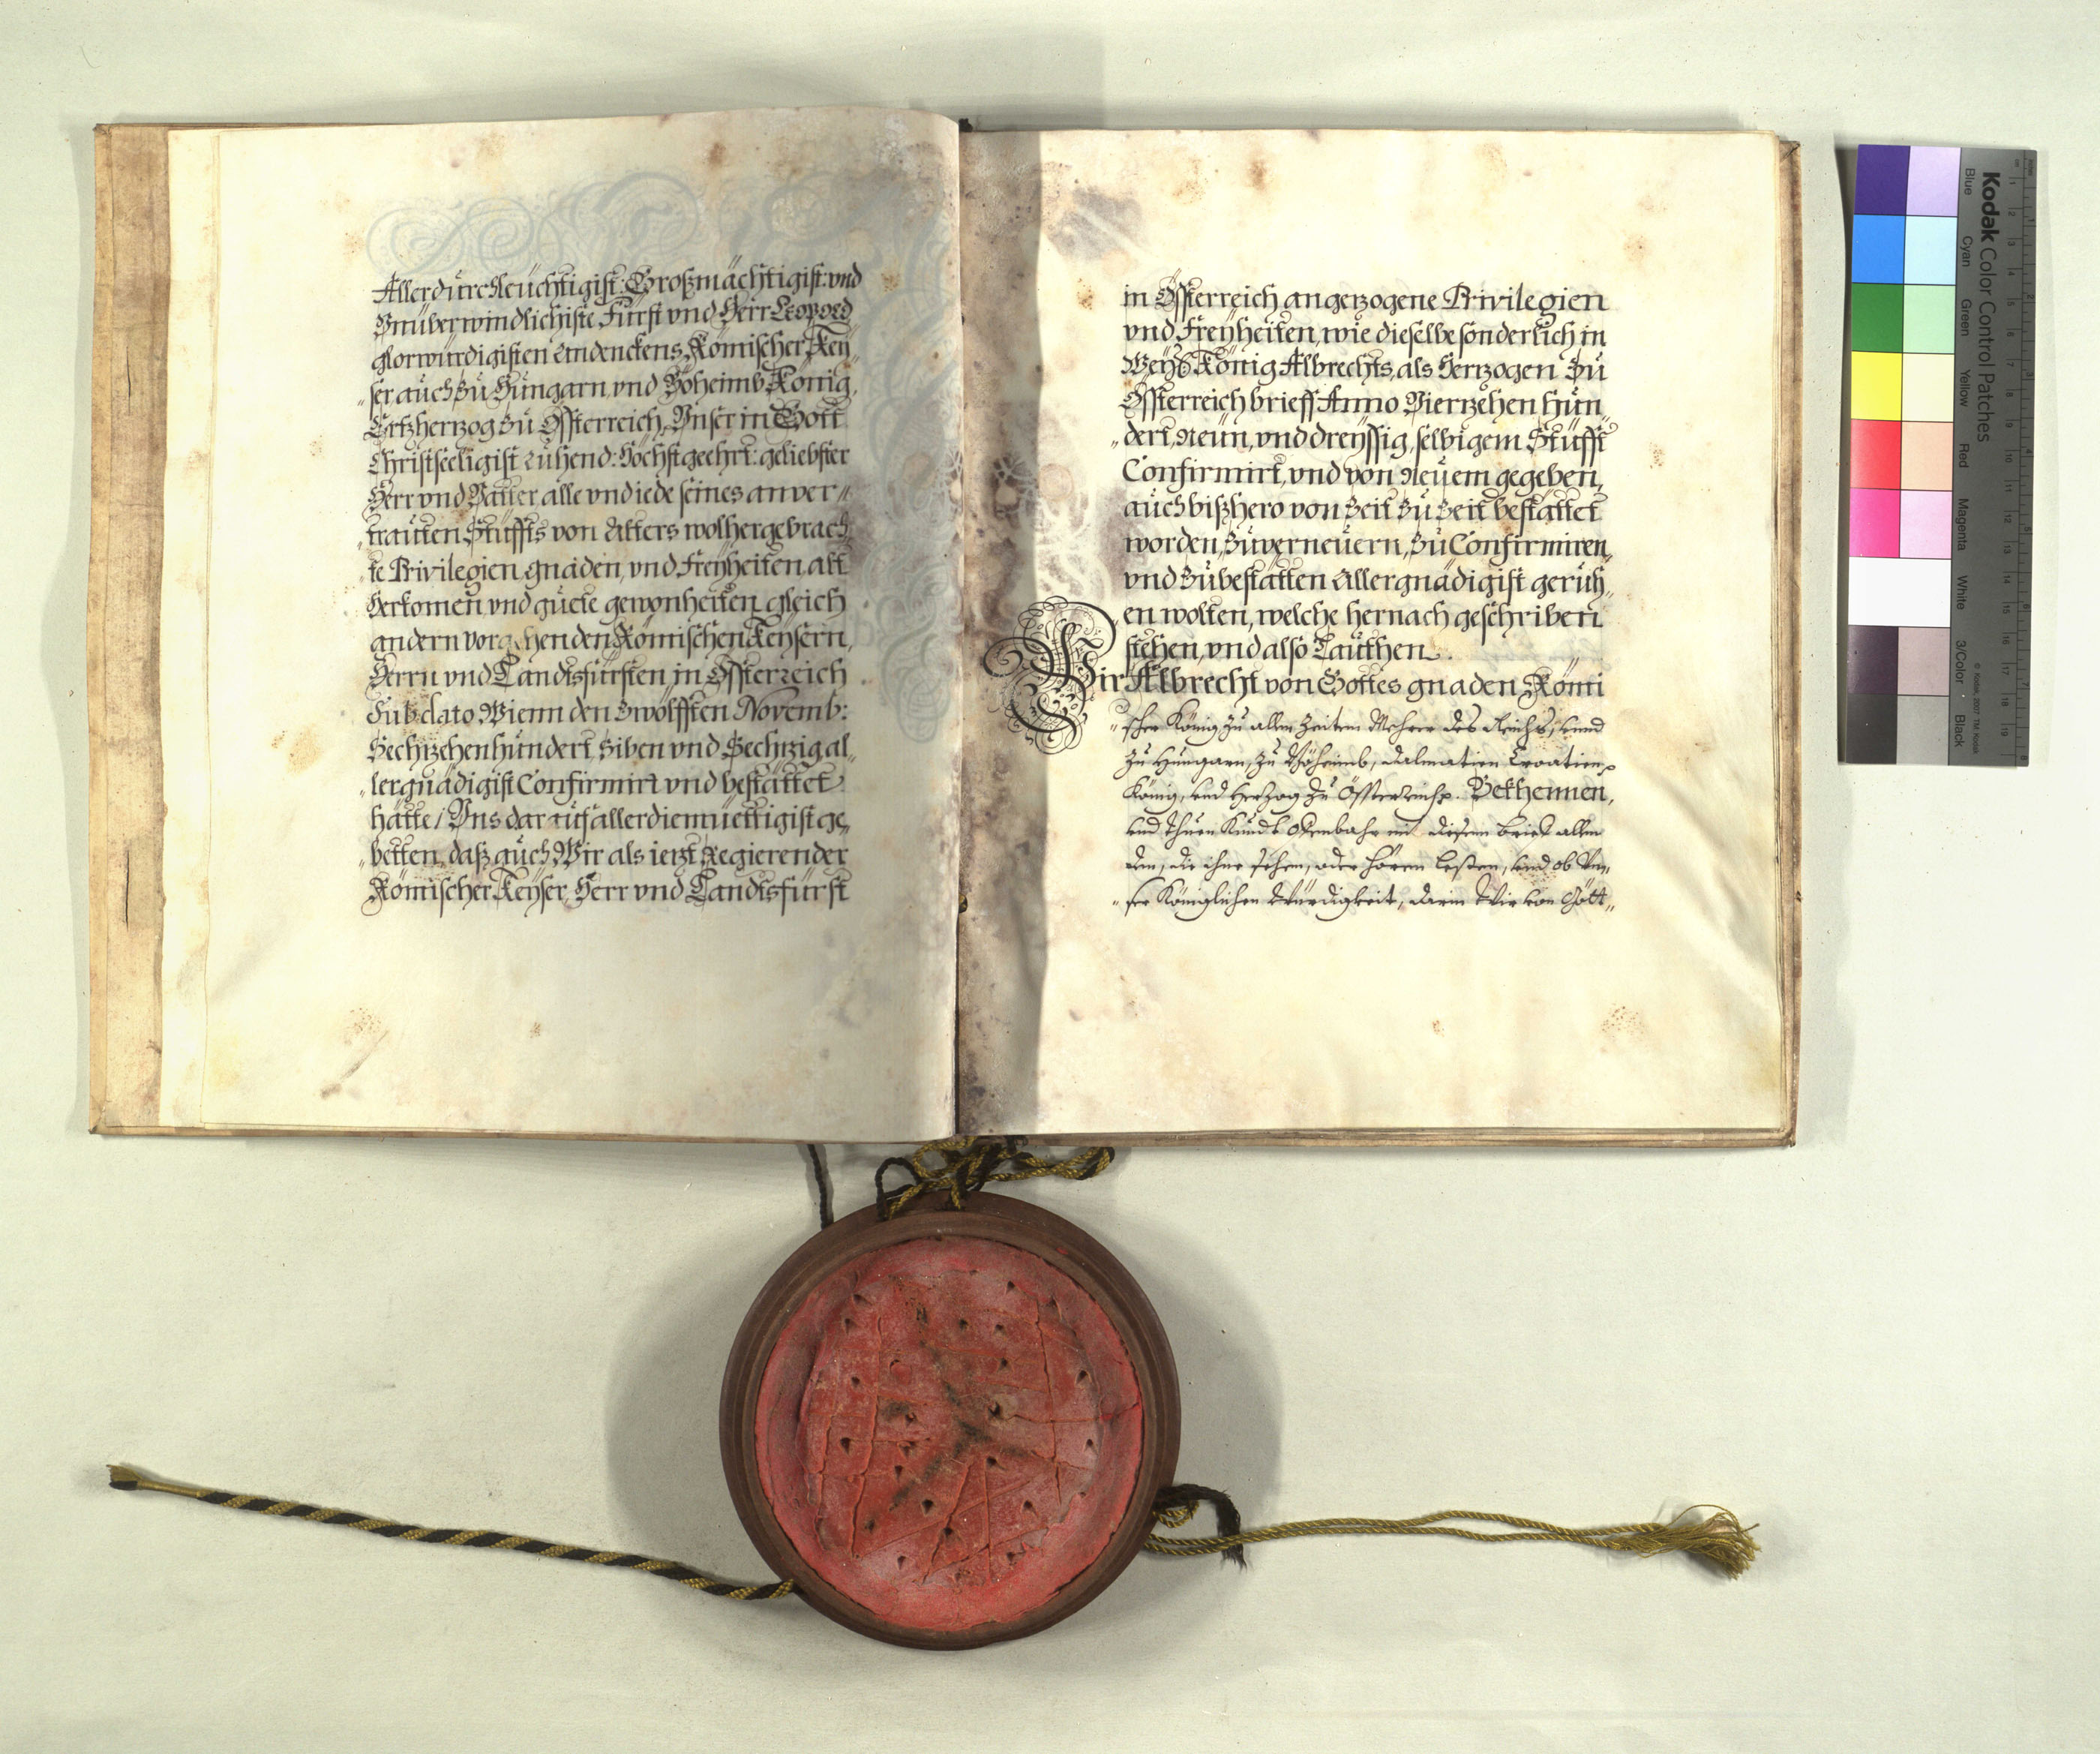 Allerdurchleuchtigist: Großmächtigist: vnd
Vnüberwindlichiste Fürst vnd Herr Leopold
glorwürdigisten Andenckens, Römischer Key
ser auch zu Hungarn, vnd Böheimb König,
Ertzherzog zu Össterreich, Vnser in Gott
Christseeligist ruhend: Höchstgeehrt: geliebster
Herr vnd Vatter alle vnd iede seines anver„
„trautten Stüffts von Alters wolhergebrach„
„te Privilegien, gnaden, vnd Freyheiten, alt
Herkomen vnd guete gewonheiten, gleich
andern vorgehenden Römischen Keysern,
Herrn vnd Landtsfürsten in Össterreich
Sub dato Wienn den Zwölfften Novemb:
Sechtzehenhundert, Siben vnd Sechtzig al„
„lergnädigist Confirmirt vnd bestättet
hätte / Vns darauf allerdiemüettigist ge„
„betten, daß auch Wir als ietzt Regierender
Römischer Keyser, Herr vnd Landtsfürst
in Össterreich angezogene Privilegien
vnd Freyheiten, wie dieselbe sonderlich in
Weyl: König Albrechts, als Hertzogen zu
Össterreich brieff Anno Viertzehen hun„
„dert, Neun, vnd dreyssig, selbigem Stüfft
Confirmirt, vnd von Neuem gegeben,
auch bißhero von Zeit zu Zeit bestättet
worden, zuverneuern, zu Confirmiren,
vnd zubestätten Allergnädigist geruh„
„en wolten, welche hernach geschriben
stehen, vnd also Lautthen.
Wir Albrecht von Gottes gnaden Römi
„scher König zu allen Zeiten Mehrer des Reichs, vnnd
zu Hungarn, zu Böheimb, Dalmatien Croatien
König, vnd Herzog zu Össterreich. Bekhennen,
vnd thuen Kundt offenbahr mit diesem brief allen
den, die ihne sehen, oder hören lesen, vnd ob Vn„
„ser Königlichen Würdigkeit, darin Wir von Gött„
Kodak Color Control Patches
Blue Cyan Green Yellow Red Magenta White 3/Color Black
© Kodak, 2007 TM: Kodak